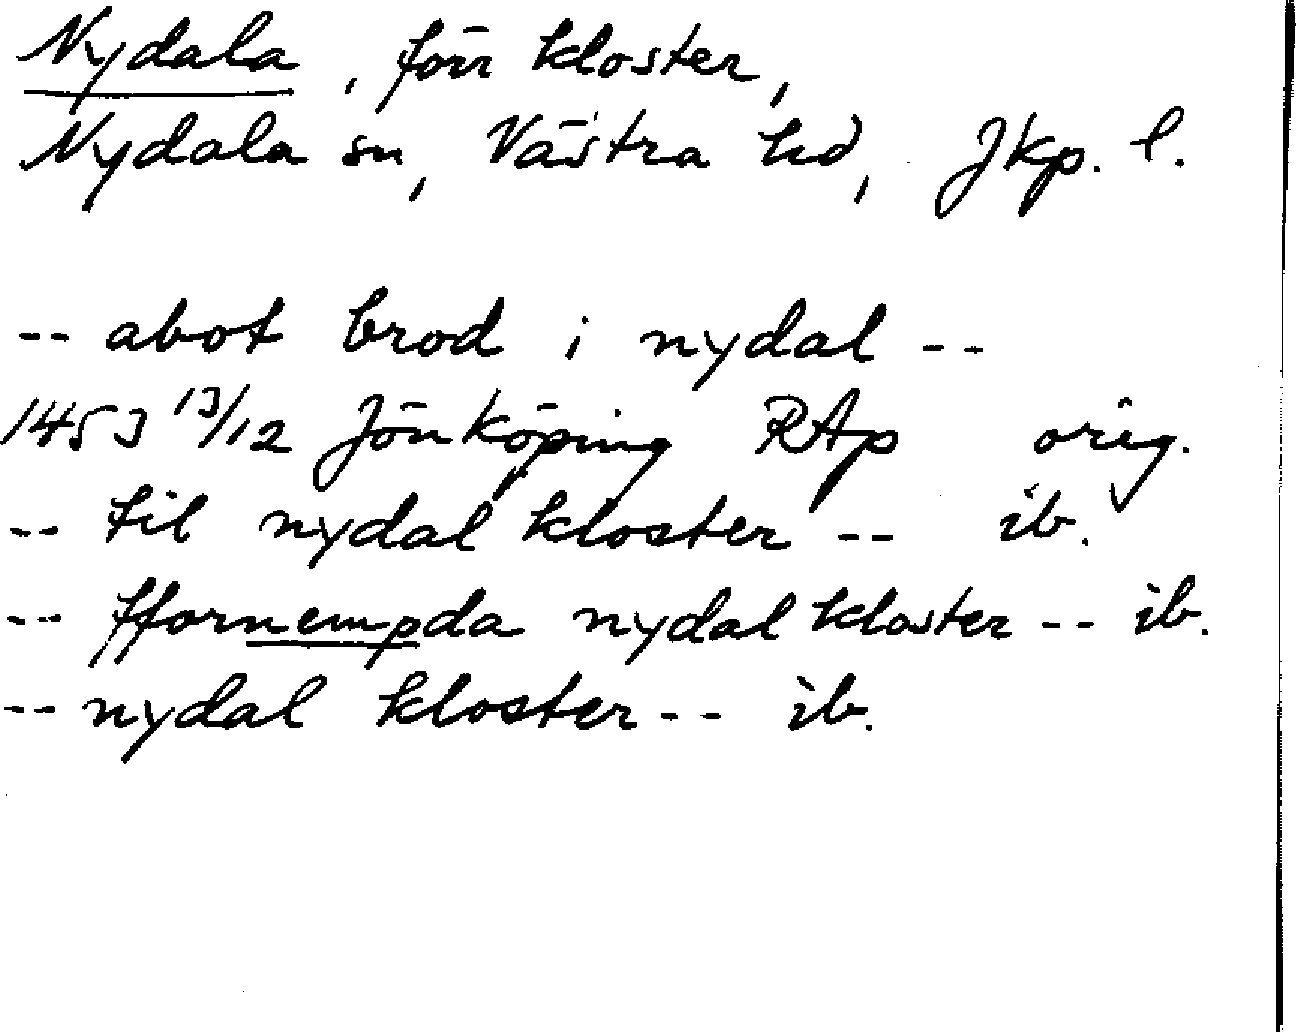 Nydala, förr kloster,
Nydala sn, Västra hd, Jkp. l.
-- abot brod i nydal --
1453 13/12 Jönköping RAp orig.
-- til nydal kloster -- ib.
-- ffornempda nydal kloster -- ib.
-- nydal kloster -- ib.